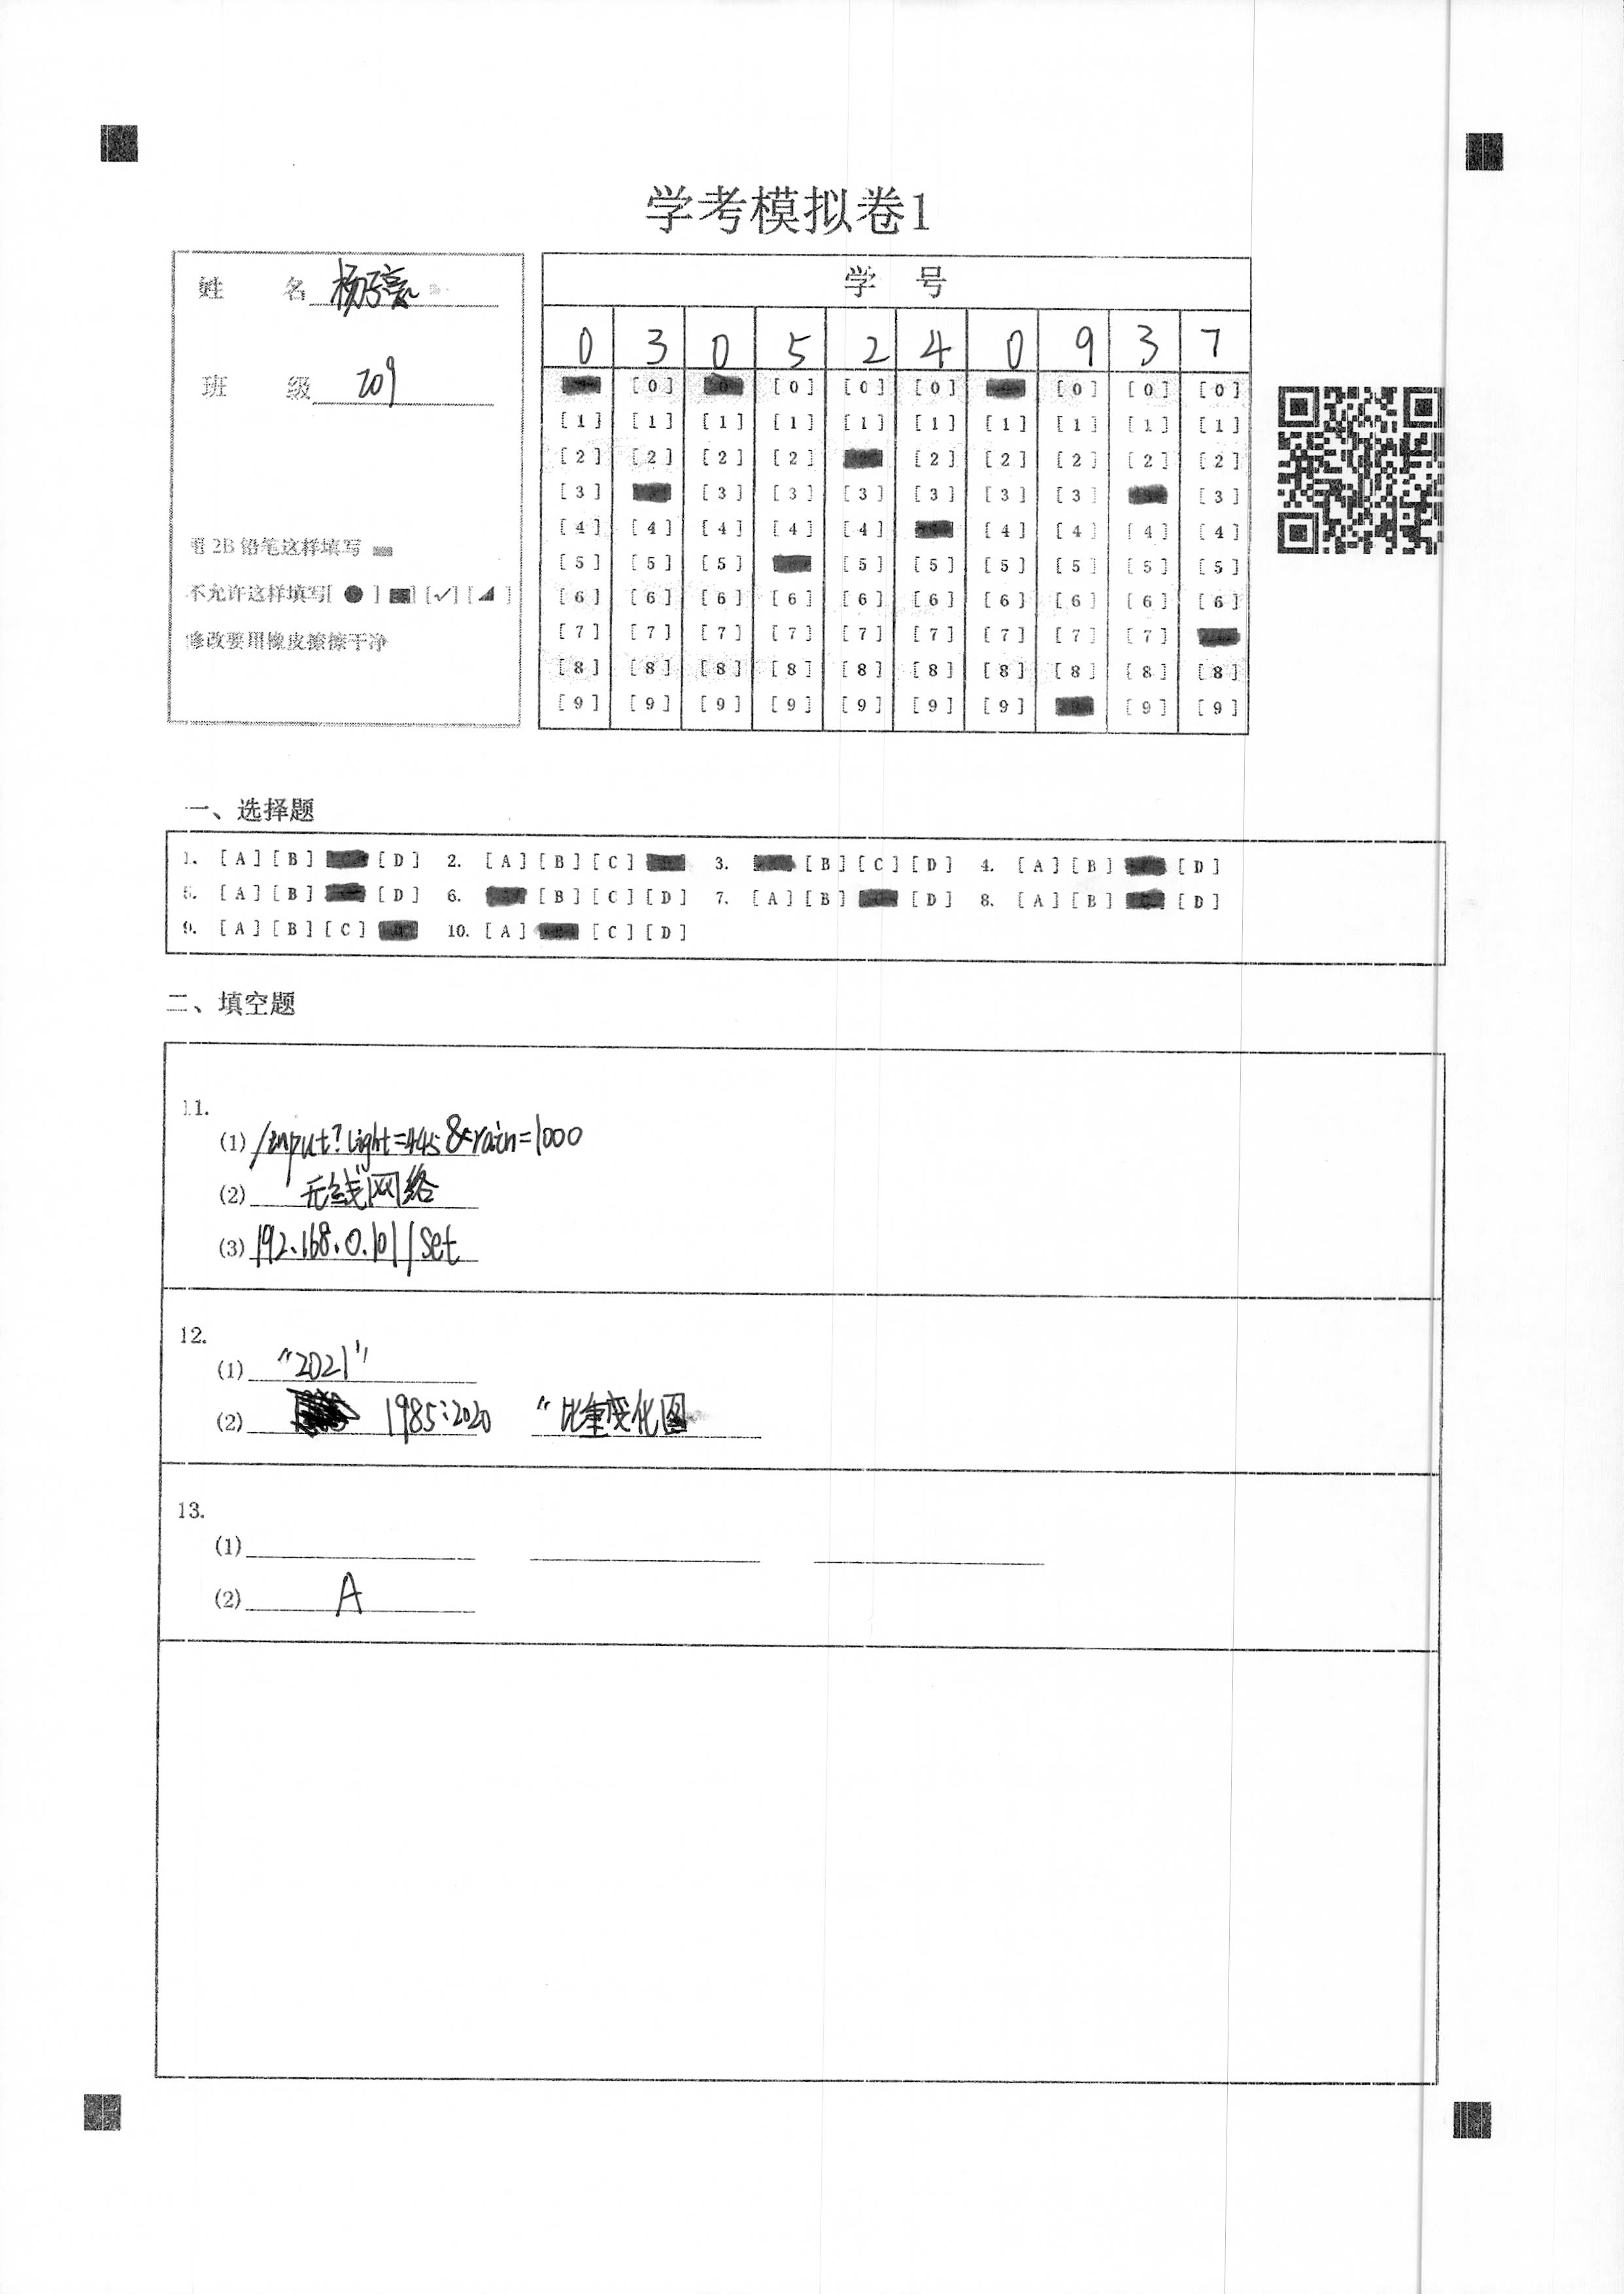 学考模拟卷1
姓 名 杨
班 级 209
用2B铅笔这样填写
不允许这样填写[●] [■] [✓] [◢]
修改要用橡皮擦擦干净
学 号
0 3 0 5 2 4 0 9 3 7
[0] [0] [0] [0] [0] [0] [0]
[1] [1] [1] [1] [1] [1] [1] [1] [1] [1]
[2] [2] [2] [2] [2] [2] [2] [2] [2]
[3] [3] [3] [3] [3] [3] [3] [3]
[4] [4] [4] [4] [4] [4] [4] [4] [4]
[5] [5] [5] [5] [5] [5] [5] [5] [5]
[6] [6] [6] [6] [6] [6] [6] [6] [6] [6]
[7] [7] [7] [7] [7] [7] [7] [7] [7]
[8] [8] [8] [8] [8] [8] [8] [8] [8] [8]
[9] [9] [9] [9] [9] [9] [9] [9] [9]
一、选择题
1. [A] [B] [D] 2. [A] [B] [C] 3. [B] [C] [D] 4. [A] [B] [D]
5. [A] [B] [D] 6. [B] [C] [D] 7. [A] [B] [D] 8. [A] [B] [D]
9. [A] [B] [C] 10. [A] [C] [D]
二、填空题
11.
(1) /input?light=445&rain=1000
(2) 无线网络
(3) 192.168.0.101/set
12.
(1) "2021"
(2) 1985:2020 "比重变化图
13.
(1)
(2) A